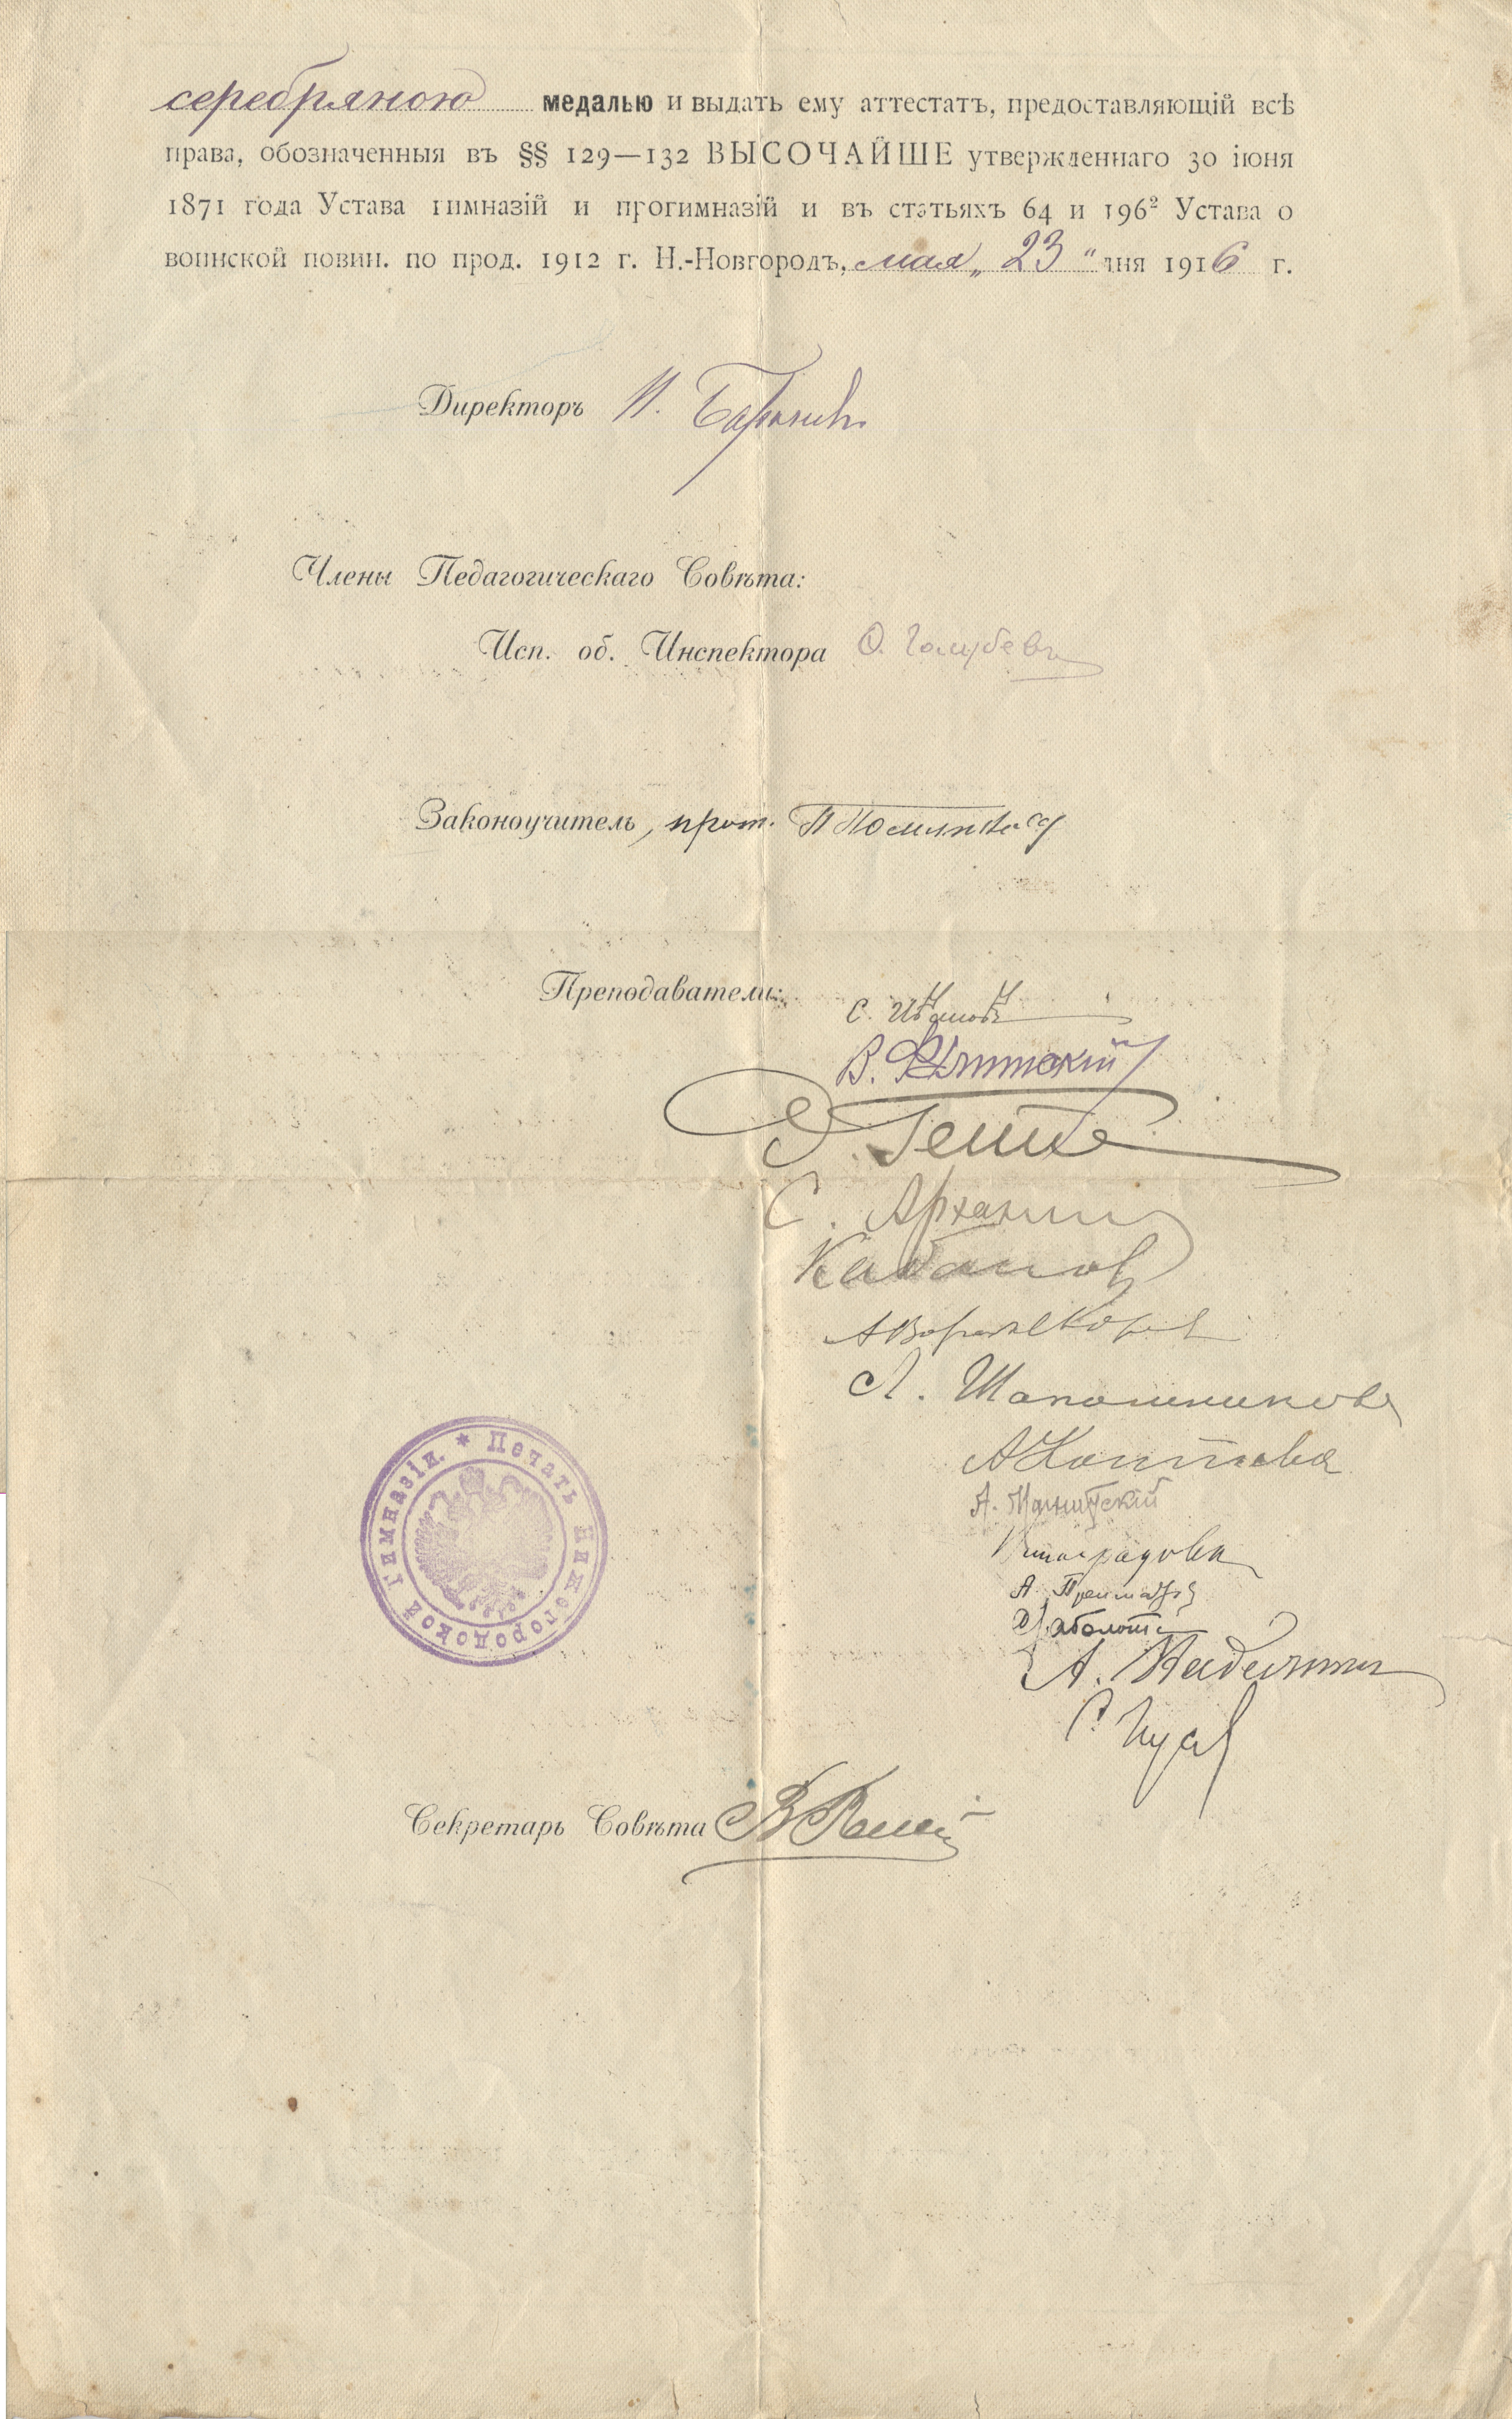 серебряною медалью и выдать ему аттестатъ, предоставляющій всѣ
права, обозначенныя въ §§ 129—132 ВЫСОЧАЙШЕ утвержденнаго 30 іюня
1871 года Устава гимназій и прогимназій и въ статьяхъ 64 и 196² Устава о
воинской повин. по прод. 1912 г. Н.-Новгородъ, мая „ 23 " дня 1916 г.
Директоръ И.
Члены Педагогическаго Совѣта:
Исп. об. Инспектора Ѳ. Голубевъ
Законоучитель, прот. П
Преподаватели:
С. Ивановъ
В.
С.
Кабанов
А
Л. Шапошниковъ
А
А.
Виноградовъ
А.
А.
С.
* Печать Нижегородской Гимназіи.
Секретарь Совѣта В